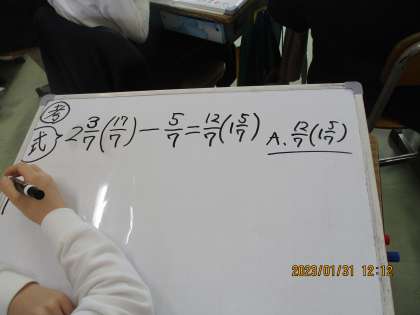 考
式 2 3/7 (17/7) − 5/7 = 12/7 (1 5/7) A. 12/7 (1 5/7)
2023/01/31 12:12